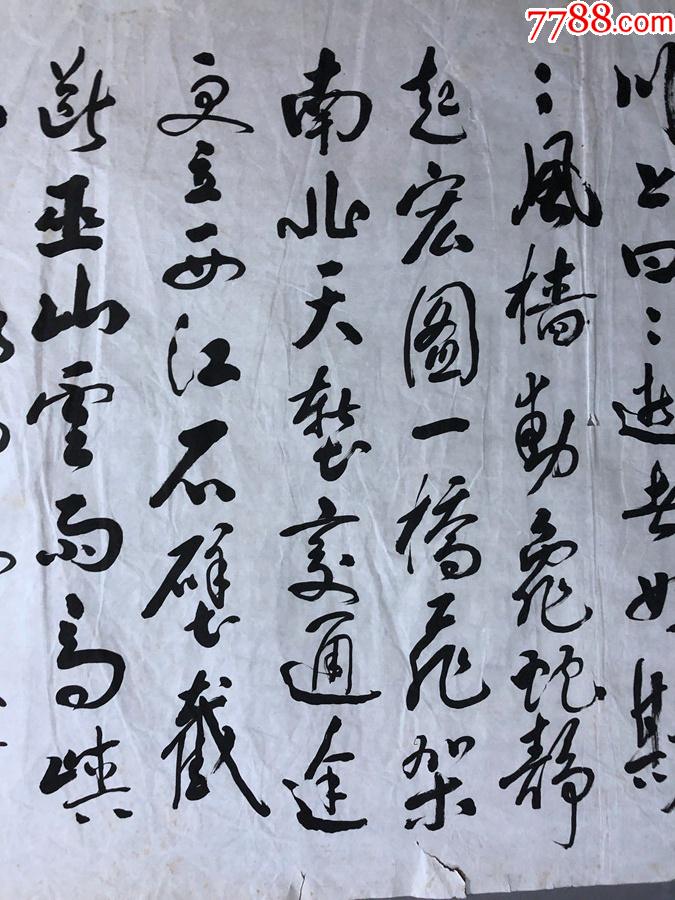 7788.com
川上曰：逝者如斯
：風檣動龜蛇静
起宏圖一橋飛架
南北天塹变通途
更立西江石壁截
断巫山雲雨高峡